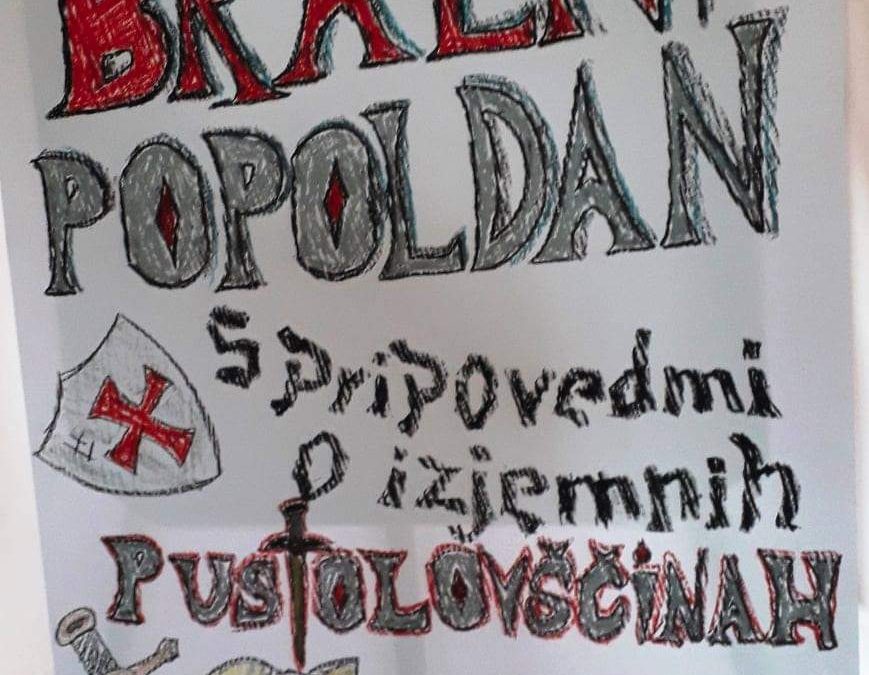 BRALNI
POPOLDAN
S pripovedmi
O izjemnih
PUSTOLOVŠČINAH